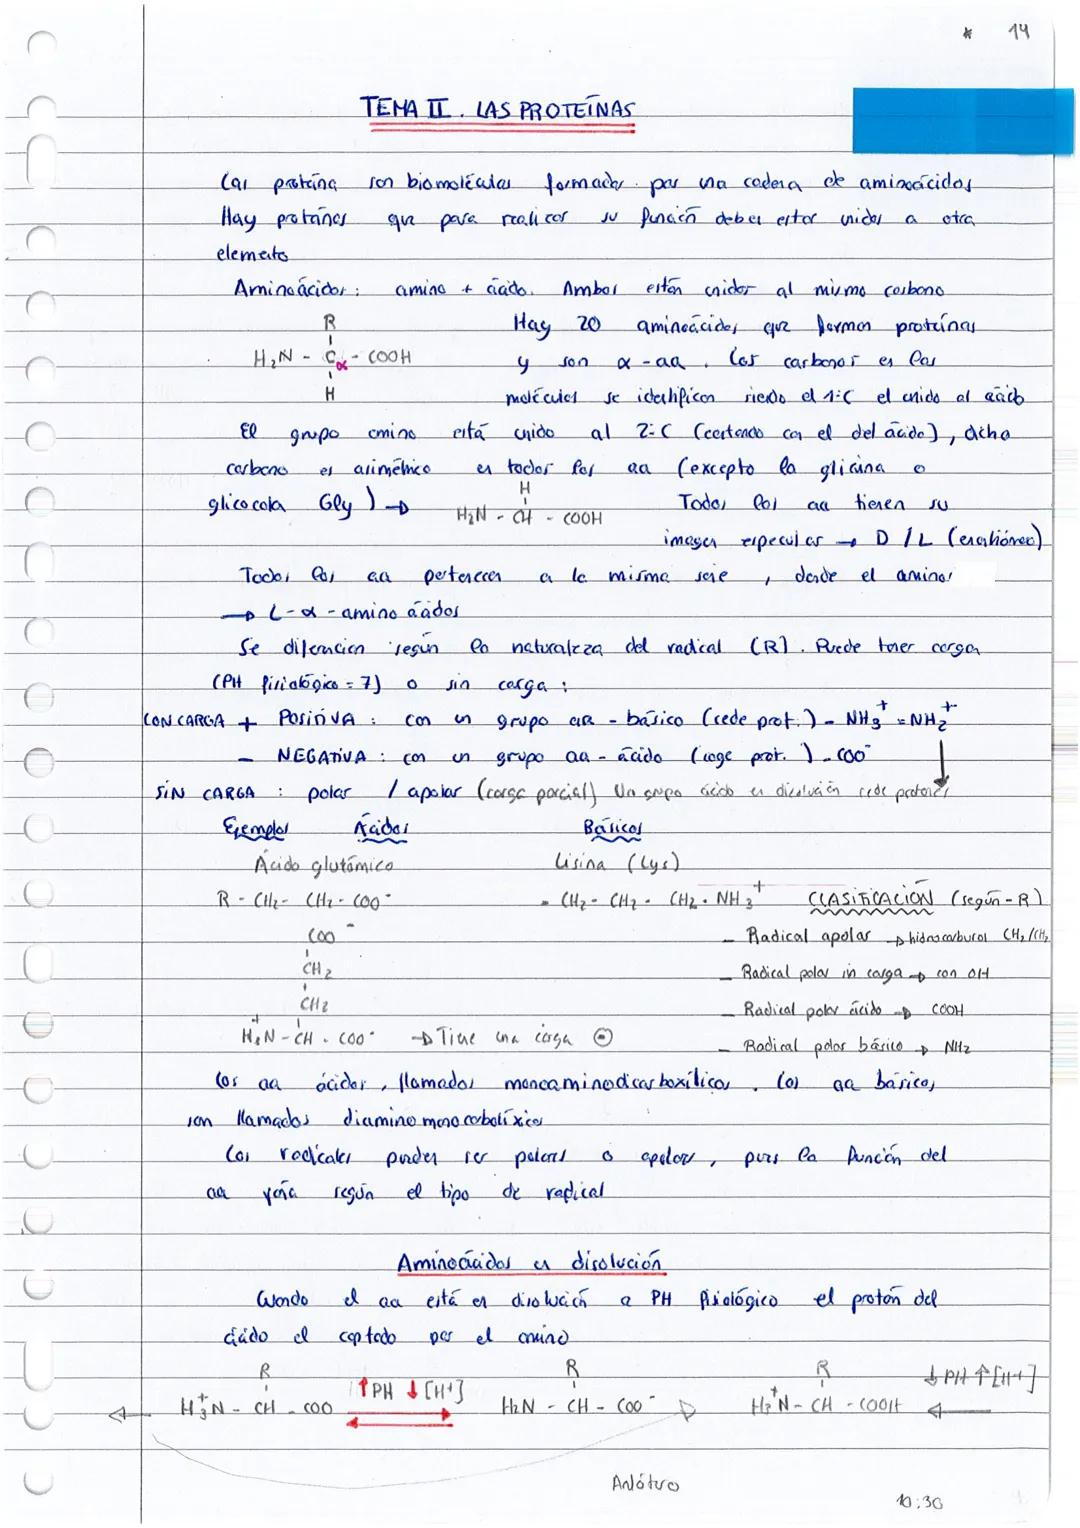 * 14
TEMA II. LAS PROTEÍNAS
Las proteína son biomoléculas formadas por una cadena de aminoácidos
Hay proteínas que para realizar su función deben estar unidos a otro
elemento
Aminoácidos: amino + ácido. Ambos están unidos al mismo carbono
R
H₂N - Cα - COOH
H
Hay 20 aminoácidos que forman proteínas
y son α-aa. Los carbonos en las
moléculas se identifican siendo el 1:C el unido al ácido
El grupo amino está unido al 2:C (contando con el del ácido), dicho
carbono es asimétrico en todos los aa (excepto la glicina o
glicocola Gly) →
H
H₂N - CH - COOH
Todos los aa tienen su
imagen especular → D/L (enantiómeo)
Todos los aa pertenecen a la misma serie, donde el amino:
→ L-α-amino ácidos
Se diferencian según la naturaleza del radical (R). Puede tener carga
(PH fisiológico = 7) o sin carga:
CON CARGA + POSITIVA: con un grupo aa - básico (cede prot.) - NH₃⁺ = NH₂⁺
- NEGATIVA: con un grupo aa - ácido (coge prot.) - COO⁻
SIN CARGA: polar / apolar (carga parcial) Un grupo ácido en disolución cede protones
Ejemplos Ácidos Básicos
Ácido glutámico Lisina (Lys)
R - CH₂ - CH₂ - COO⁻ - CH₂ - CH₂ - CH₂ - NH₃⁺ CLASIFICACIÓN (según -R)
COO⁻ - Radical apolar → hidrocarburos CH₂/CH₃
CH₂ - Radical polar sin carga → con OH
CH₂ - Radical polar ácido → COOH
H₃N⁺ - CH - COO⁻ → Tiene una carga ⊖ - Radical polar básico → NH₂
Los aa ácidos, llamados monoaminodicarboxílicos. Los aa básicos,
son llamados diamino monocarbolíxicos
Los radicales pueden ser polares o apolares, pues la función del
aa varía según el tipo de radical
Aminoácidos en disolución
Cuando el aa está en disolución a PH fisiológico el protón del
ácido el captado por el amino
R R R
H₃⁺N - CH - COO ↑PH ↓[H⁺] H₂N - CH - COO⁻ H₃⁺N - CH - COOH ↓PH ↑[H⁺]
Anfótero
10:30